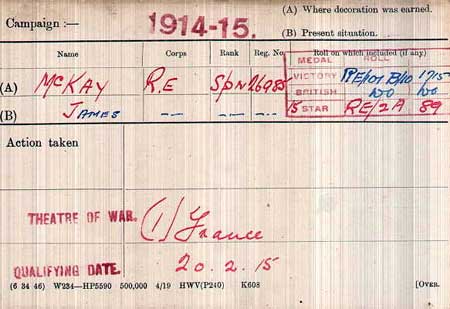 Campaign :— 1914-15. (A) Where decoration was earned.
(B) Present situation.
Name Corps Rank Reg. No. Roll on which included (if any)
MEDAL ROLL
(A) McKAY R.E SPN 26985 VICTORY RE/101 B/10 1715
BRITISH DO DO
(B) JAMES —"— —"— 15 STAR RE/2A 89
Action taken
THEATRE OF WAR. (1) France
QUALIFYING DATE. 20.2.15
(6 34 46) W234—HP5590 500,000 4/19 HWV(P240) K608 [OVER.